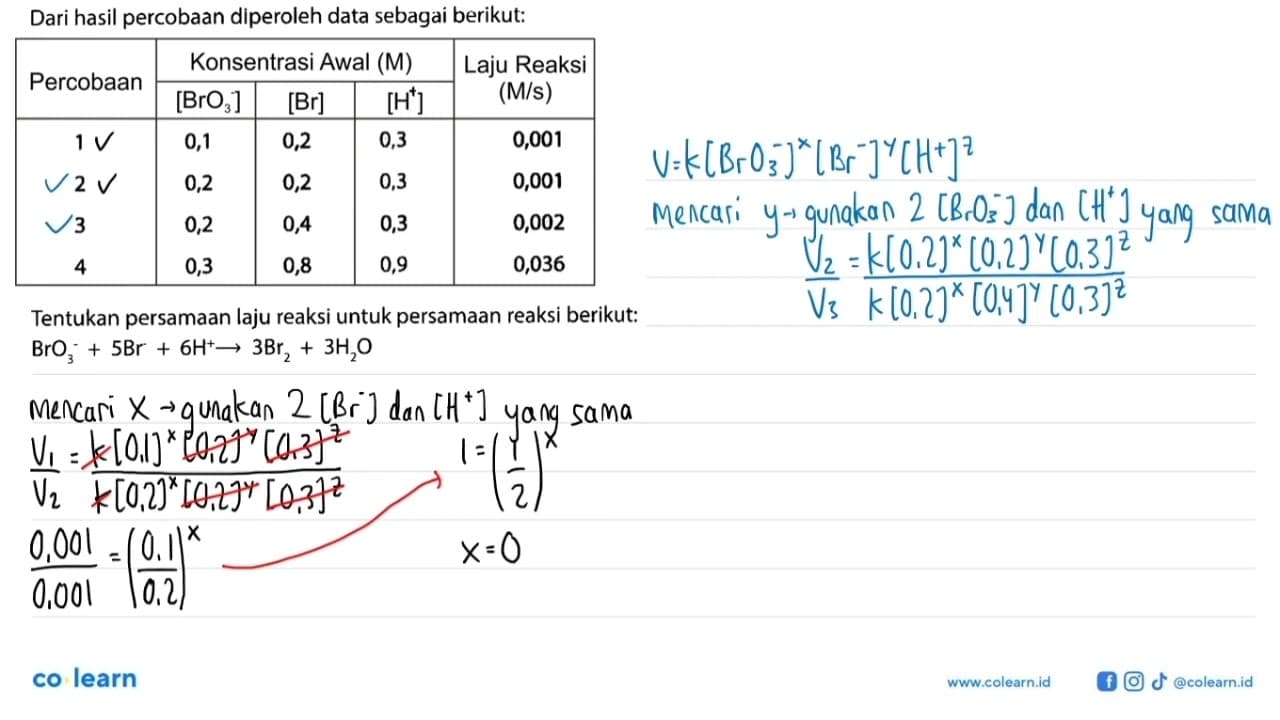 Dari hasil percobaan diperoleh data sebagai berikut:
Percobaan Konsentrasi Awal (M) Laju Reaksi (M/s)
[BrO₃⁻] [Br⁻] [H⁺]
1 ✓ 0,1 0,2 0,3 0,001
✓ 2 ✓ 0,2 0,2 0,3 0,001
✓ 3 0,2 0,4 0,3 0,002
4 0,3 0,8 0,9 0,036
Tentukan persamaan laju reaksi untuk persamaan reaksi berikut:
BrO₃⁻ + 5Br⁻ + 6H⁺ → 3Br₂ + 3H₂O
Mencari x → gunakan 2 [Br⁻] dan [H⁺] yang sama
V₁/V₂ = k[0,1]ˣ [0,2]ʸ [0,3]ᶻ / k[0,2]ˣ [0,2]ʸ [0,3]ᶻ
0,001/0,001 = (0.1/0.2)ˣ
1 = (1/2)ˣ
x = 0
V = k[BrO₃⁻]ˣ [Br⁻]ʸ [H⁺]ᶻ
Mencari y → gunakan 2 [BrO₃⁻] dan [H⁺] yang sama
V₂/V₃ = k[0,2]ˣ [0,2]ʸ [0,3]ᶻ / k[0,2]ˣ [0,4]ʸ [0,3]ᶻ
co learn
www.colearn.id
@colearn.id